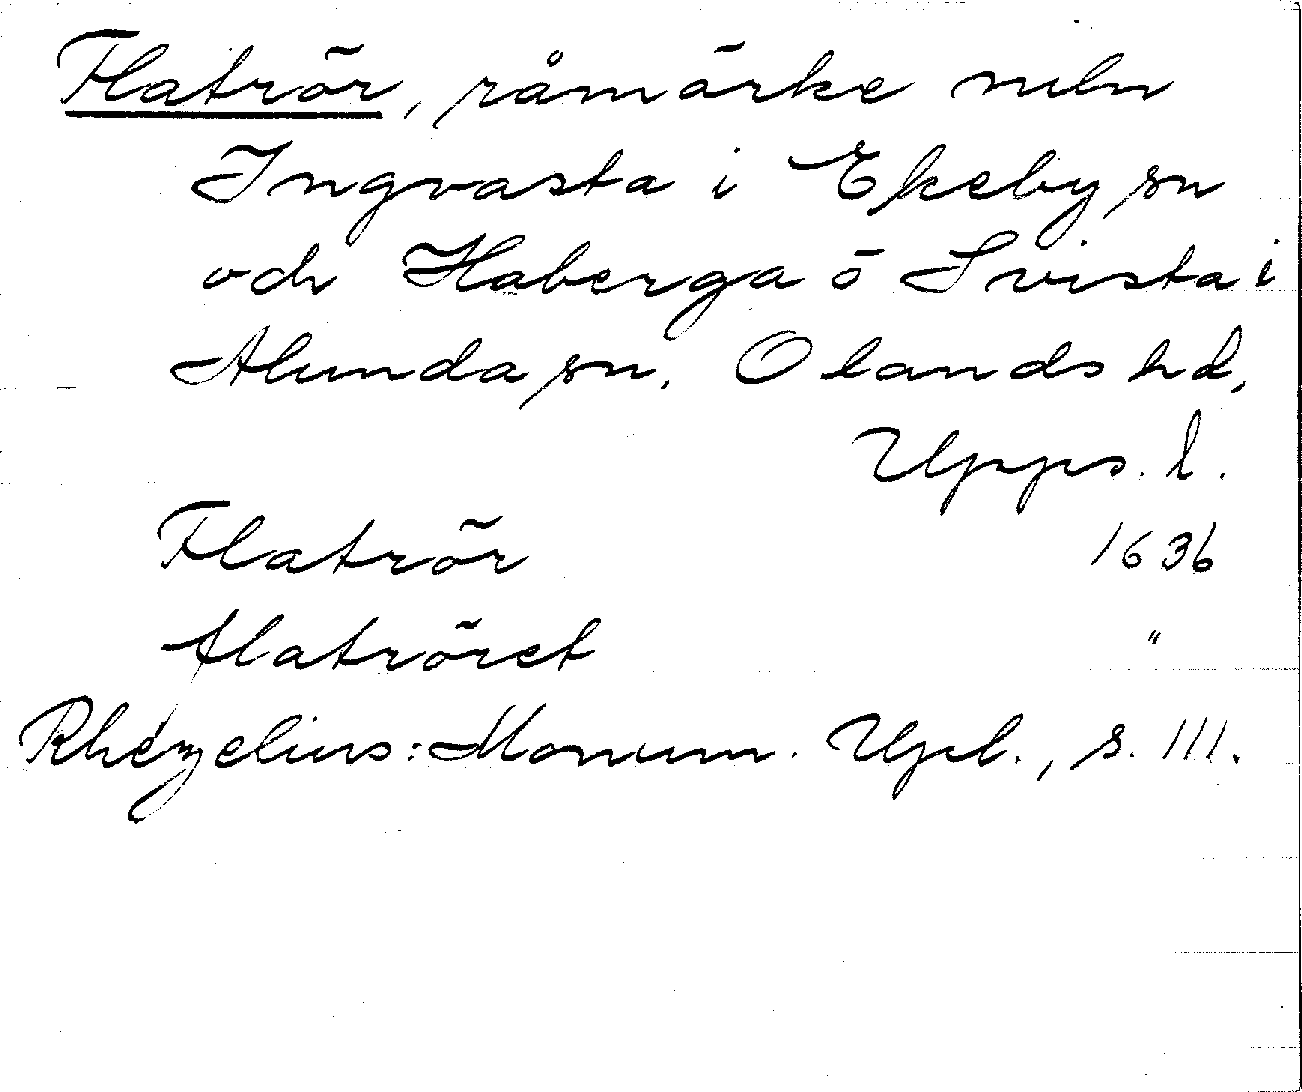 Flatrör, råmärke mln
Ingvasta i Ekeby sn
och Haberga o Svista i
Alunda sn. Olands hd,
Upps. l.
Flatrör 1636
flatröret "
Rhezelius: Monum. Upl., s. 111.